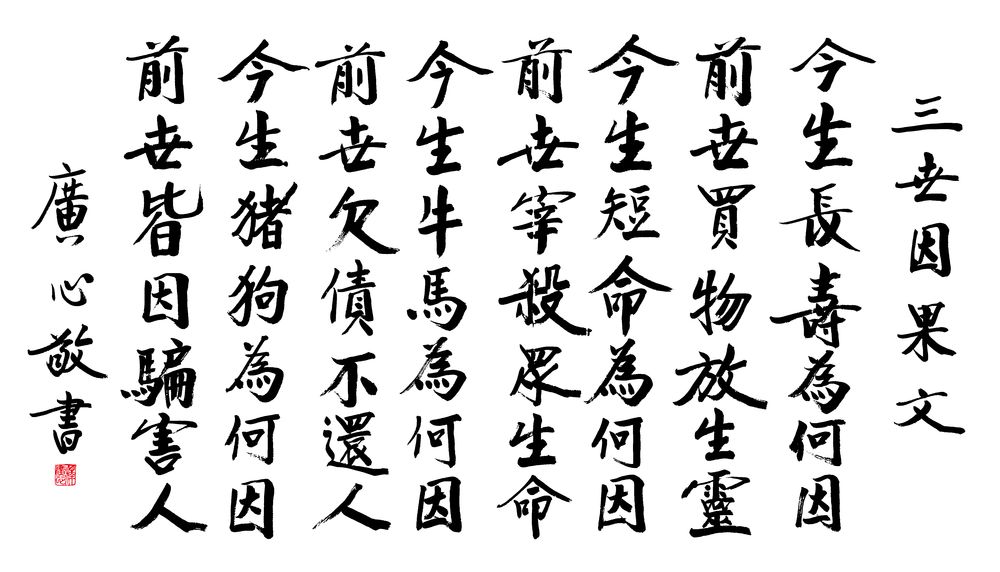 三世因果文
今生長壽為何因
前世買物放生靈
今生短命為何因
前世宰殺眾生命
今生牛馬為何因
前世欠債不還人
今生豬狗為何因
前世皆因騙害人
廣心敬書